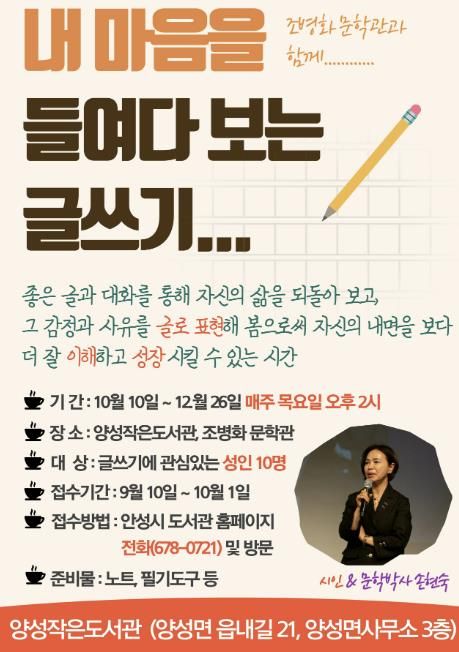 내 마음을
조병화 문학관과
함께............
들여다 보는
글쓰기...
좋은 글과 대화를 통해 자신의 삶을 되돌아 보고,
그 감정과 사유를 글로 표현해 봄으로써 자신의 내면을 보다
더 잘 이해하고 성장 시킬 수 있는 시간
기 간 : 10월 10일 ~ 12월 26일 매주 목요일 오후 2시
장 소 : 양성작은도서관, 조병화 문학관
대 상 : 글쓰기에 관심있는 성인 10명
접수기간 : 9월 10일 ~ 10월 1일
접수방법 : 안성시 도서관 홈페이지
전화(678-0721) 및 방문
준비물 : 노트, 필기도구 등
시인 & 문학박사 손현숙
양성작은도서관 (양성면 읍내길 21, 양성면사무소 3층)